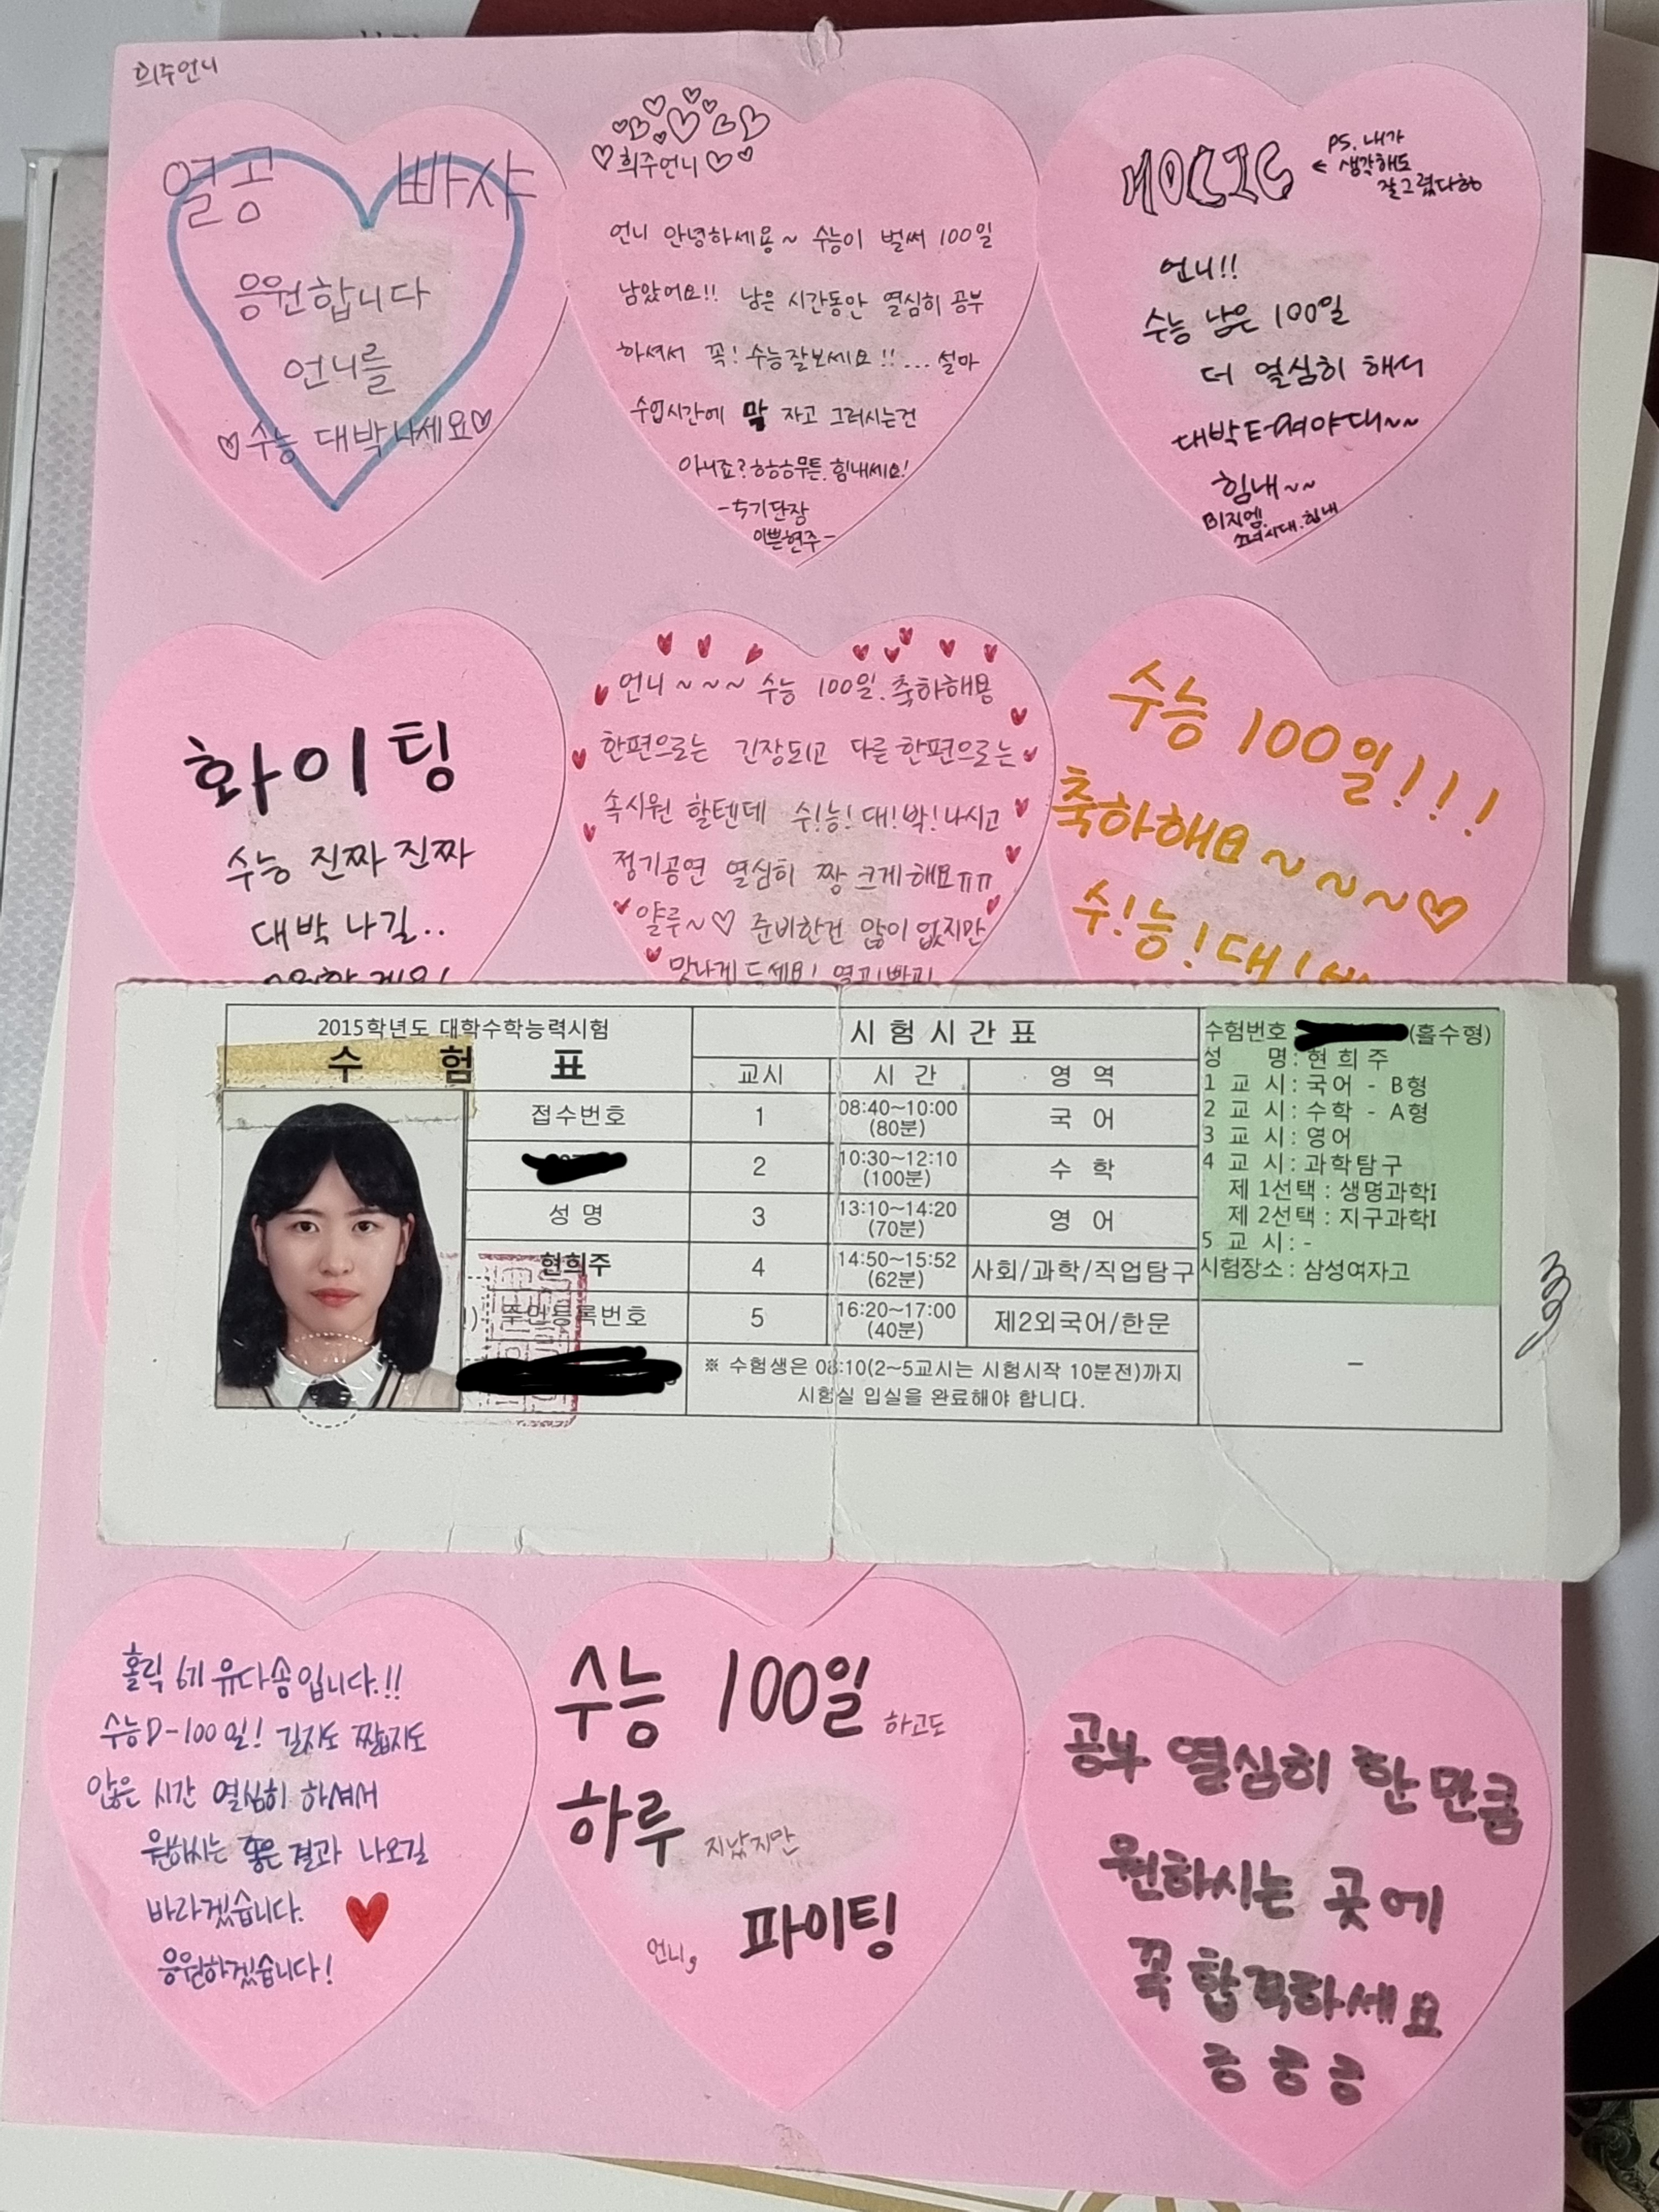 희주언니
열공 빠샤
응원합니다
언니를
♡수능 대박나세요♡
♡희주언니♡♡
언니 안녕하세용~ 수능이 벌써 100일
남았어요!! 남은 시간동안 열심히 공부
하셔서 꼭! 수능잘보세요!!... 설마
수업시간에 막 자고 그러시는건
아니죠? ㅎㅎㅎ무튼 힘내세요!
-5기단장
이쁜현주-
HOLIC
← PS. 내가
생각해도
잘그렸다ㅎㅎ
언니!!
수능 남은 100일
더 열심히 해서
대박터져야대~~
힘내~~
비지엠.
소녀시대.힘내
화이팅
수능 진짜 진짜
대박 나길..
언니~~~ 수능 100일.축하해용
한편으로는 긴장되고 다른한편으로는
속시원 할텐데 수!능!대!박!나시고
정기공연 열심히 짱 크게해요ㅠㅠ
얄루~♡ 준비한건 많이 없지만
맛나게 드세요! 열공!빠이!
수능 100일!!!
축하해요~~~♡
수!능!대!박
2015학년도 대학수학능력시험
수 험 표
접수번호
성 명
현희주
주민등록번호
시 험 시 간 표
교시 시 간 영 역
1 08:40~10:00 (80분) 국 어
2 10:30~12:10 (100분) 수 학
3 13:10~14:20 (70분) 영 어
4 14:50~15:52 (62분) 사회/과학/직업탐구
5 16:20~17:00 (40분) 제2외국어/한문
※ 수험생은 08:10(2~5교시는 시험시작 10분전)까지
시험실 입실을 완료해야 합니다.
수험번호 (홀수형)
성 명: 현 희 주
1 교 시: 국어 - B형
2 교 시: 수학 - A형
3 교 시: 영어
4 교 시: 과학탐구
제 1선택 : 생명과학I
제 2선택 : 지구과학I
5 교 시: -
시험장소 : 삼성여자고
-
홀릭 6기 유다솜입니다.!!
수능D-100일! 길지도 짧지도
않은 시간 열심히 하셔서
원하시는 좋은 결과 나오길
바라겠습니다.
응원하겠습니다!
수능 100일 하고도
하루 지났지만
언니, 파이팅
공부 열심히 한 만큼
원하시는 곳에
꼭 합격하세요
ㅎㅎㅎ